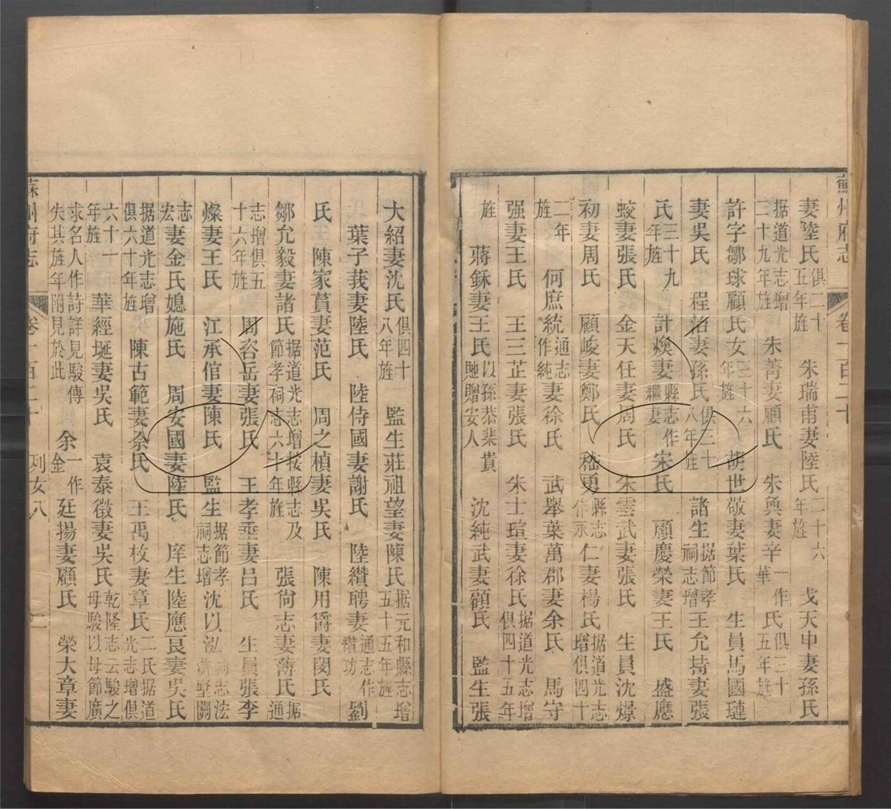 蘇州府志 卷一百二十
妻陸氏俱二十五年旌 朱瑞甫妻陸氏二十六年旌 戈天申妻孫氏
据道光志增二十九年旌 朱菁妻顧氏 朱奐妻辛一作華氏俱三十五年旌
許字鄒球顧氏女三十六年旌 胡世敬妻葉氏 生員馬國璉
妻吳氏 程治妻孫氏俱三十八年旌 諸生据節孝祠志增王允持妻張
氏三十九年旌 計煥妻縣志作繼妻宋氏 顧慶榮妻王氏 盛應
蛟妻張氏 金天任妻周氏 朱雲武妻張氏 生員沈燝
初妻周氏 顧峻妻鄭氏 嵇勇縣志作永仁妻楊氏据道光志增俱四十
二年旌 何庶統通志作純妻徐氏 武舉葉萬郡妻余氏 馬守
强妻王氏 王三芷妻張氏 朱士瑄妻徐氏据道光志增俱四十五年
旌 蔣鉌妻王氏以孫恭棐貴貤贈安人 沈純武妻顧氏 監生張
大紹妻沈氏俱四十八年旌 監生莊祖望妻陳氏据元和縣志增五十五年旌
葉子莪妻陸氏 陸侍國妻謝氏 陸纘聘妻通志作纘功劉
氏 陳家蒷妻范氏 周之楨妻吳氏 陳用霌妻閔氏
鄒允毅妻諸氏据道光志增按縣志及節孝祠志六十年旌 張尙志妻薄氏据通
志增俱五十六年旌 周容岳妻張氏 王孝垂妻呂氏 生員張李
燦妻王氏 江承倌妻陳氏 監生据節孝祠志增沈以泓
志宏妻金氏媳施氏 周安國妻陸氏 庠生陸應良妻吳氏
据道光志增俱六十年旌 陳古範妻余氏 王禹枚妻章氏二氏据道光志增俱
六十一年旌 華經埏妻吳氏 袁泰徵妻吳氏乾隆志云駿之母駿以母節廣
求名人作詩詳見駿傳失其旌年附見於此 余一作金廷揚妻顧氏 榮大章妻
蘇州府志 卷一百二十 列女八 一